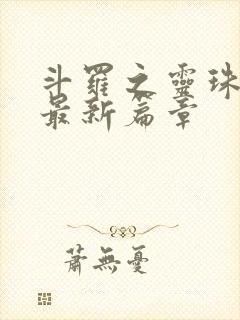 斗羅之靈珠
最新篇章
蕭無憂